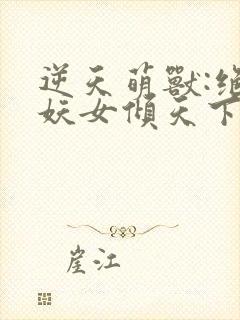 逆天萌獸:絕
妖女傾天下
崖江